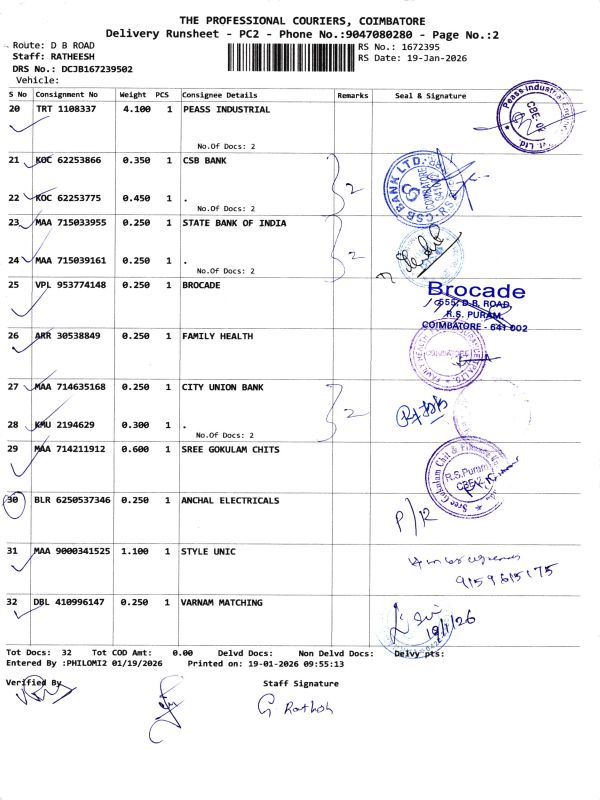 THE PROFESSIONAL COURIERS, COIMBATORE
Delivery Runsheet - PC2 - Phone No.:9047080280 - Page No.:2
Route: D B ROAD
RS No.: 1672395
Staff: RATHEESH
RS Date: 19-Jan-2026
DRS No.: DCJB167239502
Vehicle:
S No Consignment No Weight PCS Consignee Details Remarks Seal & Signature
20 TRT 1108337 4.100 1 PEASS INDUSTRIAL
No.Of Docs: 2
21 KOC 62253866 0.350 1 CSB BANK
2
22 KOC 62253775 0.450 1 .
No.Of Docs: 2
CSB BANK LTD.
23 MAA 715033955 0.250 1 STATE BANK OF INDIA
2
24 MAA 715039161 0.250 1 .
No.Of Docs: 2
25 VPL 953774148 0.250 1 BROCADE
Brocade
555, D.B. ROAD,
R.S. PURAM,
COIMBATORE - 641 002
26 ARR 30538849 0.250 1 FAMILY HEALTH
27 MAA 714635168 0.250 1 CITY UNION BANK
2
28 KMU 2194629 0.300 1 .
No.Of Docs: 2
29 MAA 714211912 0.600 1 SREE GOKULAM CHITS
Sree Gokulam Chit & Finance Co.
R.S.Puram
CBE-2
30 BLR 6250537346 0.250 1 ANCHAL ELECTRICALS
P/R
31 MAA 9000341525 1.100 1 STYLE UNIC
9159615175
32 DBL 410996147 0.250 1 VARNAM MATCHING
19/1/26
Tot Docs: 32 Tot COD Amt: 0.00 Delvd Docs: Non Delvd Docs: Delvy pts:
Entered By :PHILOMI2 01/19/2026 Printed on: 19-01-2026 09:55:13
Verified By
Staff Signature